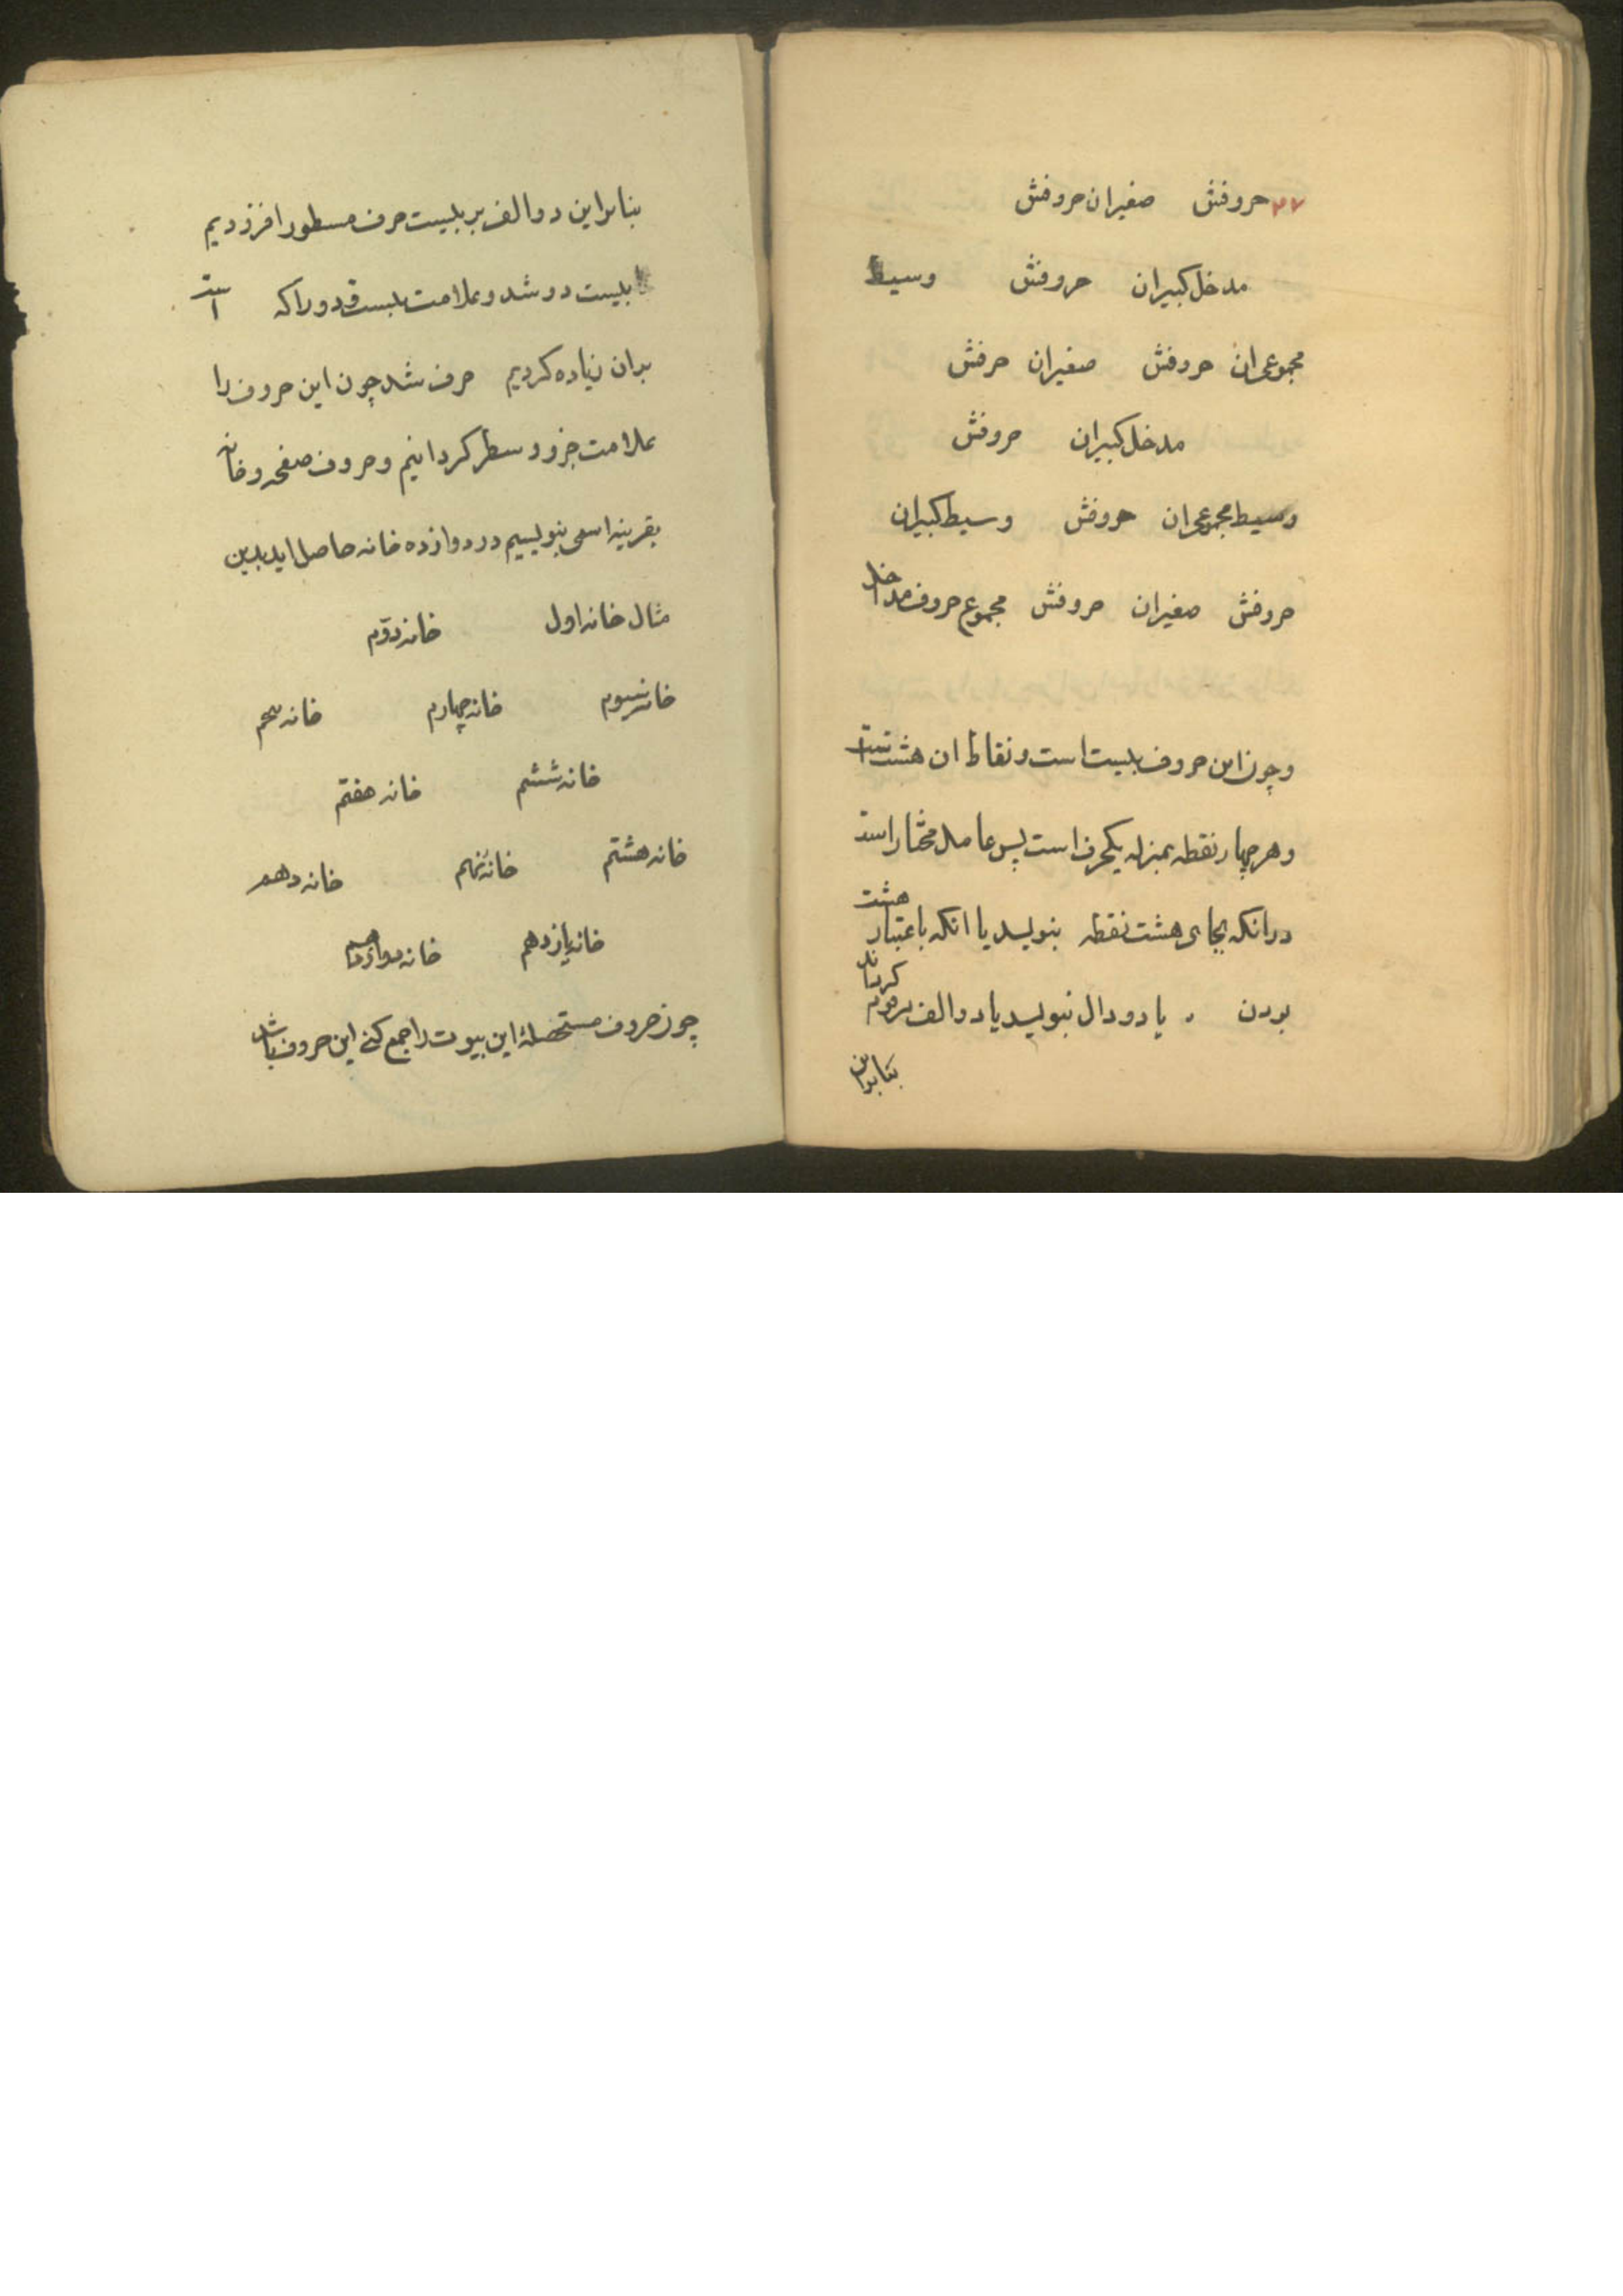 ۲۷ حروفش صغیران حروفش
مدخل کبیران حروفش وسیط
مجموعران حروفش صغیران حرفش
مدخل کبیران حروفش
وسیط مجموعران حروفش وسیط کبیران
حروفش صغیران حروفش مجموع حروف مداخل
و چون این حروف بیست است و نقاط ان هشت است
و هر چهار نقطه بمنزله یکحرف است پس عامل مختار است
در انکه بجای هشت نقطه بنویسد یا انکه باعتبار هشت
بودن یا دو دال بنویسد یا دو الف مرقوم کرداند
بنابراین
بنابراین دو الف بر بیست حرف مسطور افزودیم
بیست دو شد و علامت بیست و دو را که است
بدان زیاده کردیم حرف شد چون این حروف را
علامت جزو و سطر کردانیم و حروف صفحه و خانه
بقرینه اسمی بنویسیم در دوازده خانه حاصل اید بدین
مثال خانه اول خانه دوّم
خانه سیوم خانه چهارم خانه پنجم
خانه ششم خانه هفتم
خانه هشتم خانه نهم خانه دهم
خانه یازدهم خانه دوازدهم
چون حروف مستحصلهٔ این بیوت را جمع کنی این حروف باشد